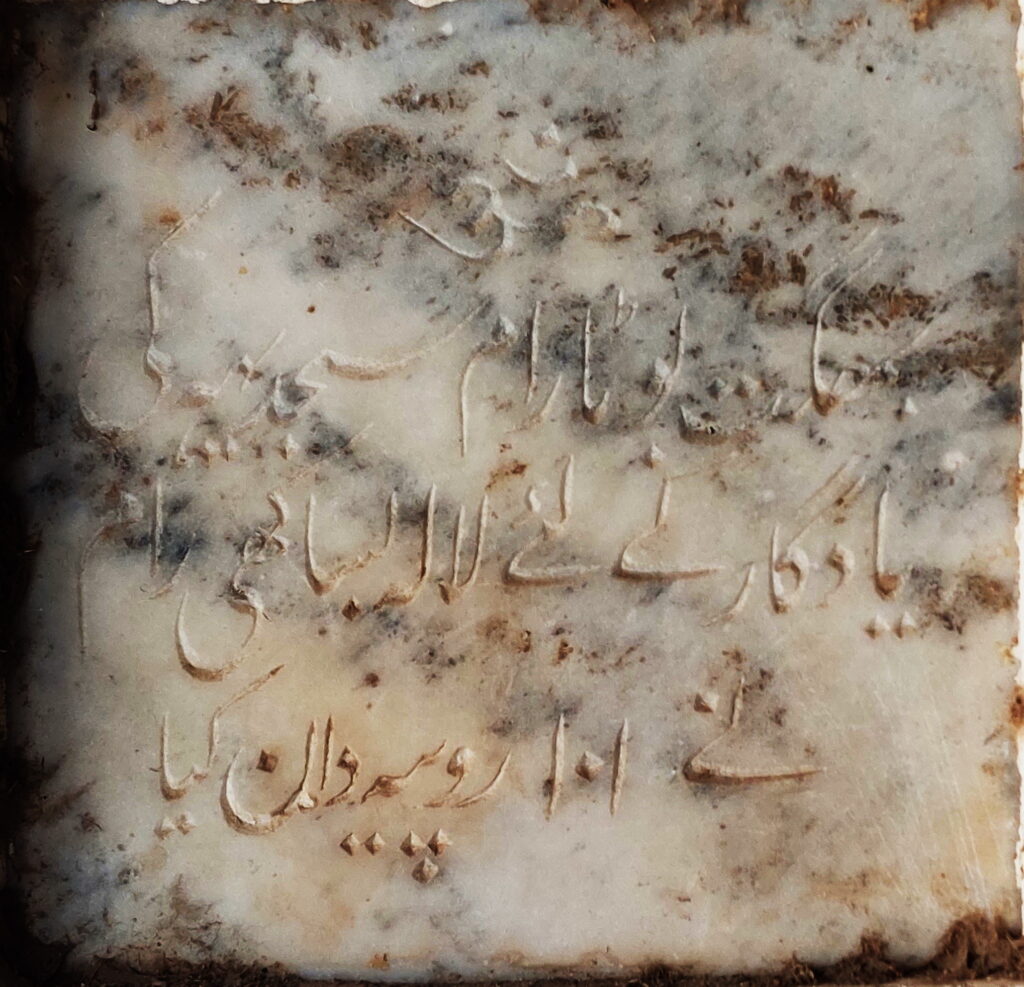 بھگت لوٹا رام کی
یادگار کے لئے لالہ بساکھی رام
نے ۱۰۱ روپیہ دان کیا